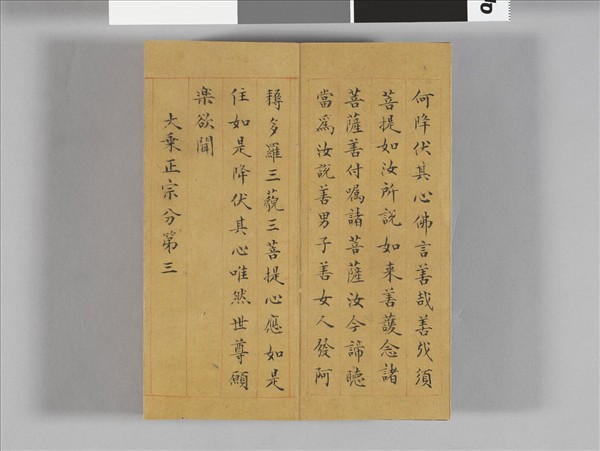 何降伏其心佛言善哉善哉須
菩提如汝所說如来善護念諸
菩薩善付嘱諸菩薩汝今諦聴
當爲汝説善男子善女人發阿
耨多羅三藐三菩提心應如是
住如是降伏其心唯然世尊願
楽欲聞
大乗正宗分第三